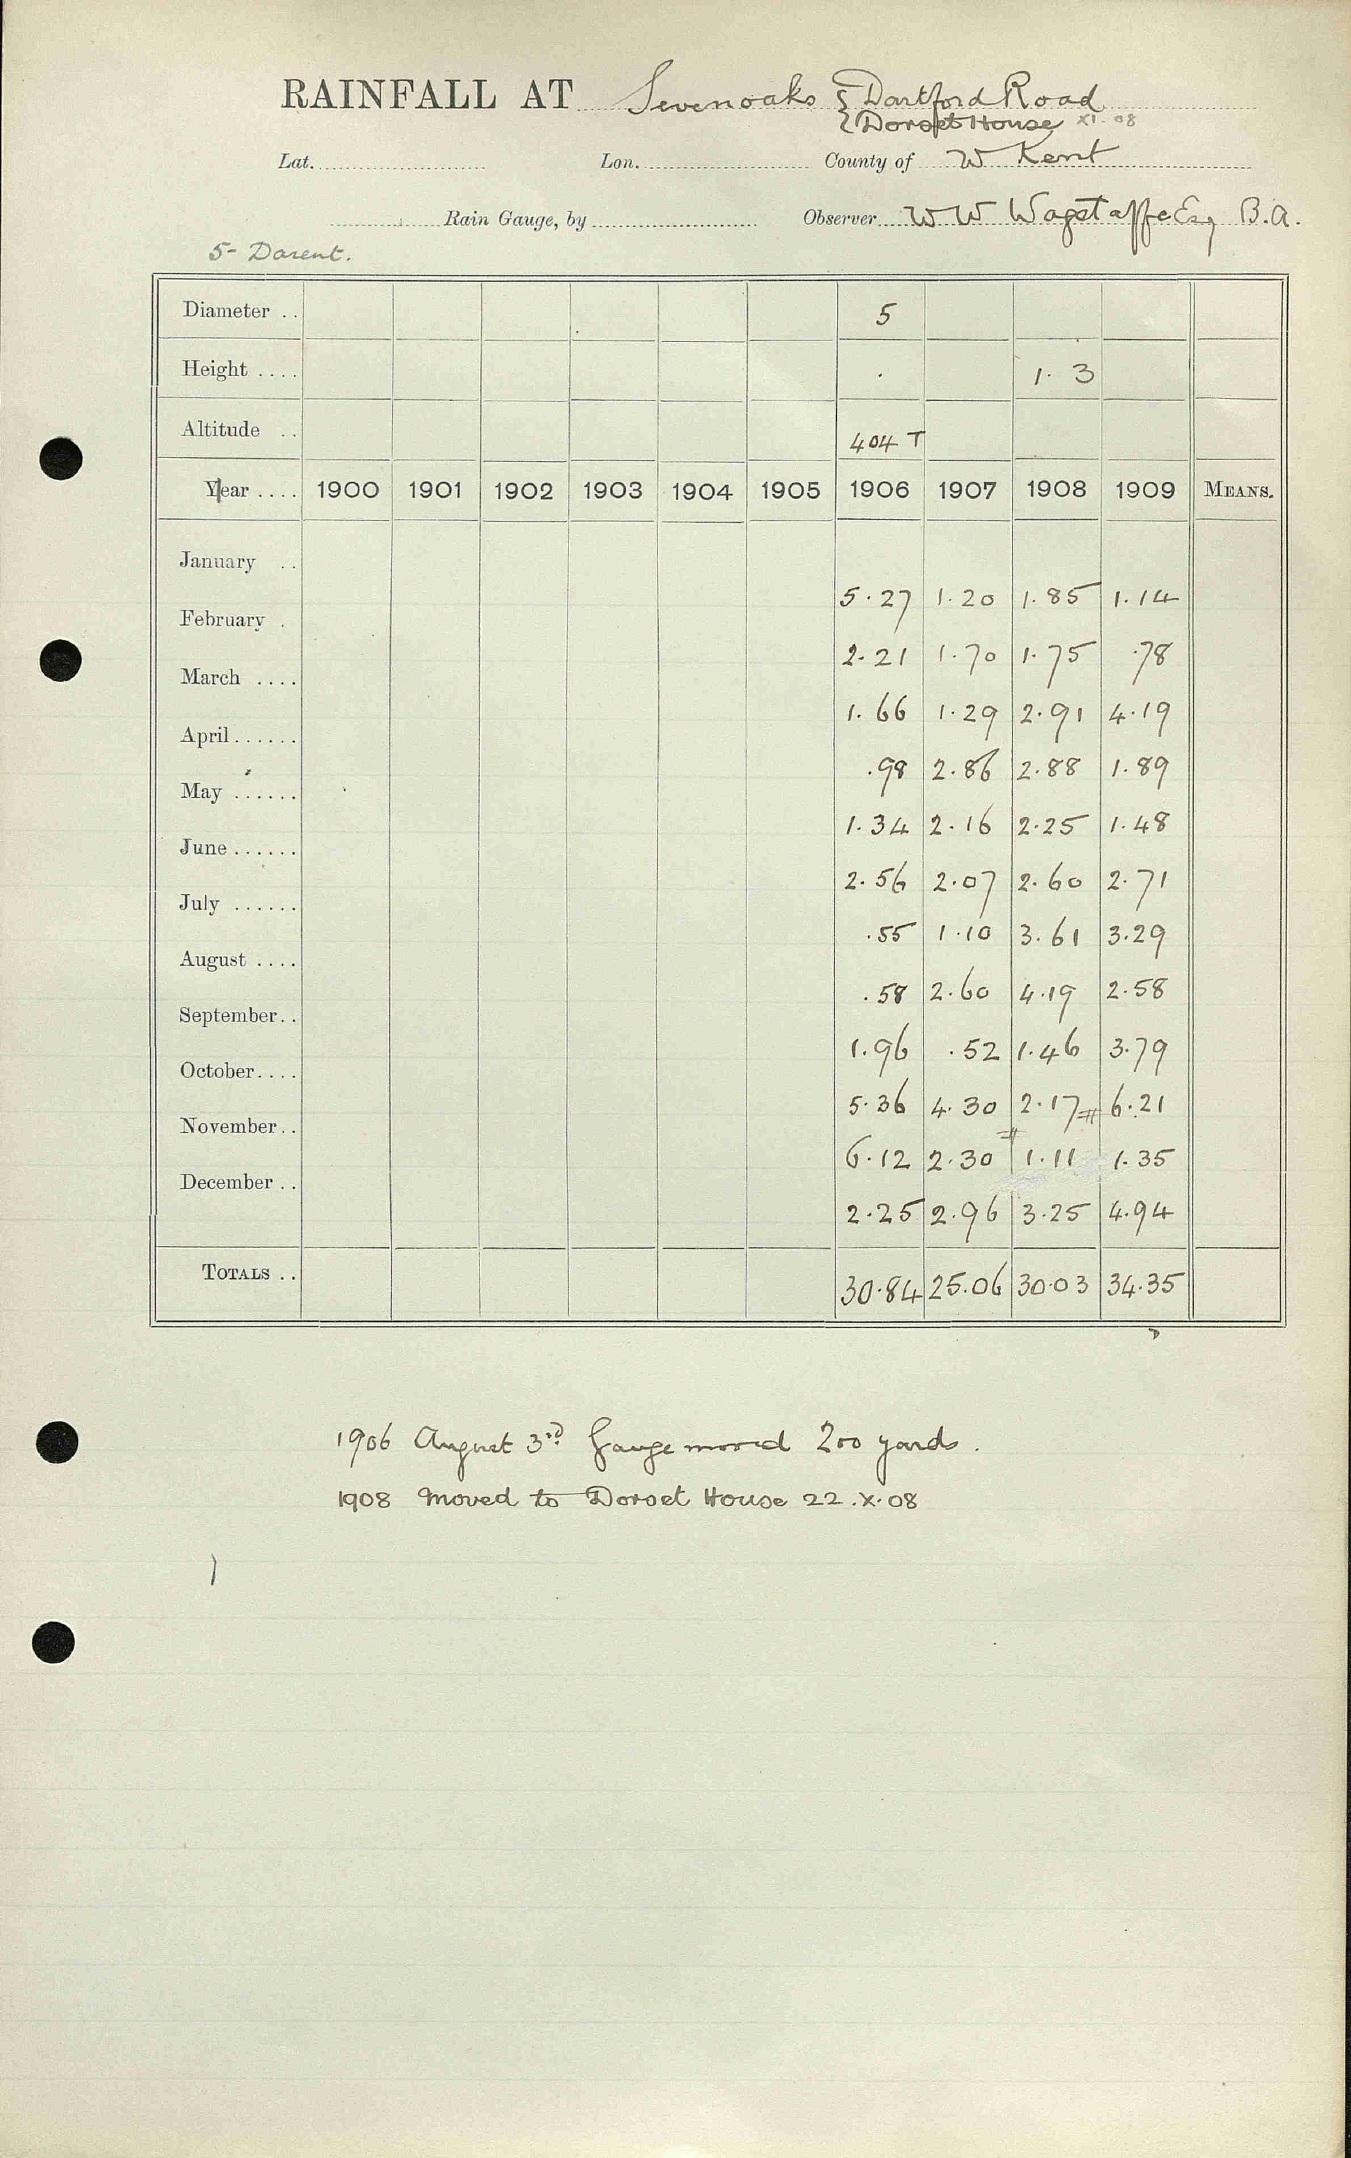 RAINFALL AT Sevenoaks { Dartford Road
{ Dorset House XI. 08
Lat. Lon. County of W Kent
Rain Gauge, by Observer W W Wagstaffe Esq B.A.
5- Darent.
Diameter .. 5
Height .... 1. 3
Altitude .. 404 T
Year .... 1900 1901 1902 1903 1904 1905 1906 1907 1908 1909 MEANS.
January .. 5.27 1.20 1.85 1.14
February . 2.21 1.70 1.75 .78
March .... 1.66 1.29 2.91 4.19
April...... .98 2.86 2.88 1.89
May ...... 1.34 2.16 2.25 1.48
June ...... 2.56 2.07 2.60 2.71
July ...... .55 1.10 3.61 3.29
August .... .58 2.60 4.19 2.58
September.. 1.96 .52 1.46 3.79
October.... 5.36 4.30 2.17 6.21
November.. 6.12 2.30 1.11 1.35
December .. 2.25 2.96 3.25 4.94
TOTALS .. 30.84 25.06 30.03 34.35
1906 August 3rd Gauge moved 200 yards.
1908 Moved to Dorset House 22.X.08